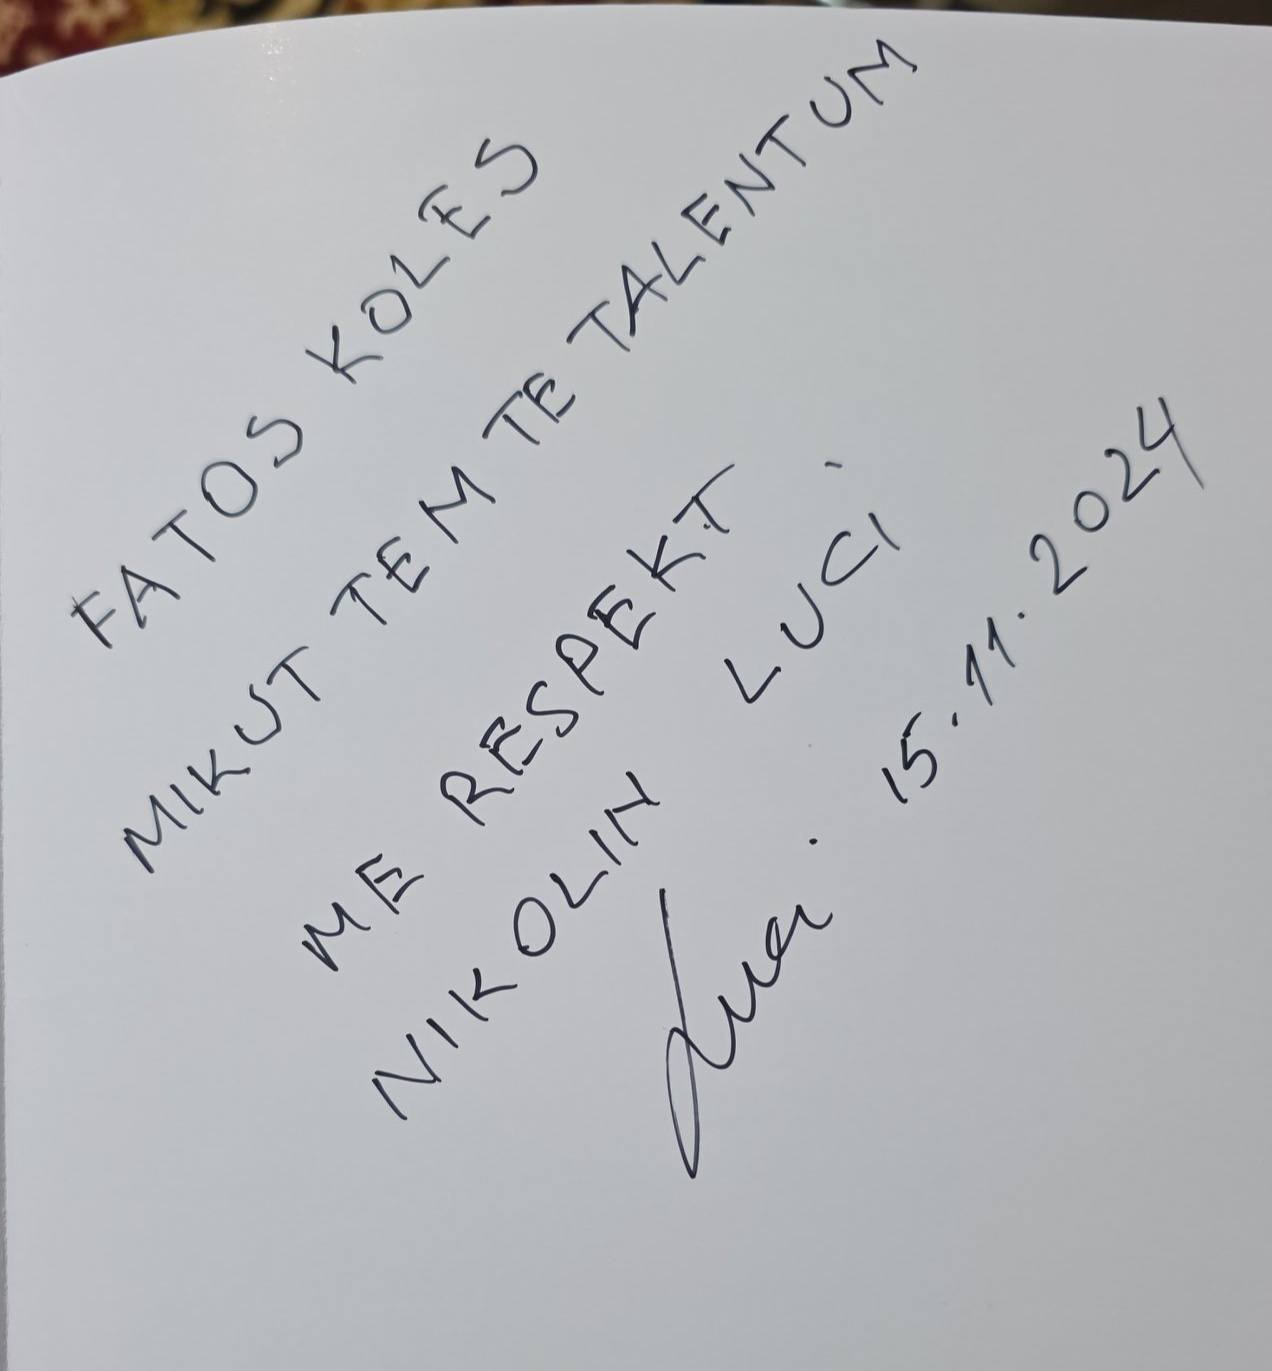 FATOS KOLES
MIKUT TEM TE TALENTUM
ME RESPEKT
NIKOLIN LUCI
Luci. 15.11.2024